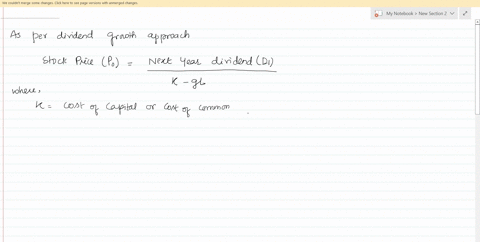 We couldn't merge some changes. Click here to see page versions with unmerged changes.
My Notebook > New Section 2
As per dividend growth approach
Stock Price (P0) = Next Year dividend (D1)
K - gL
where,
K = Cost of Capital or Cost of Common